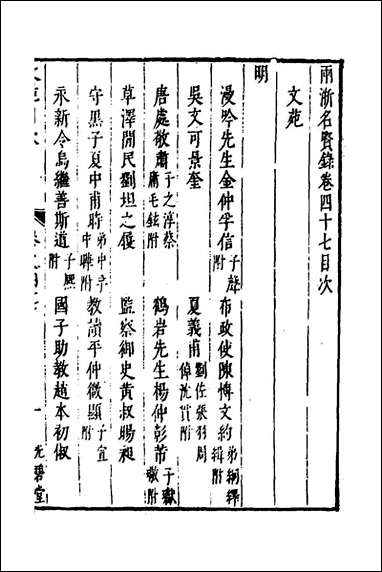 兩浙名賢錄卷四十七目次
文苑
明
漫吟先生金仲孚信子聲附
布政使陳愽文約弟綱繹緝附
吳文可景奎
夏義甫劉佐張羽周倬沈貫附
唐處敬肅子之淳蔡庸毛鉉附
鶴岩先生楊仲彰芾子嶽敬附
草澤閒民劉坦之履
監察御史黃叔暘昶
守黑子夏中甫時弟中孚中曄附
教諭平仲微顯子宜附
永新令烏繼善斯道子熙附
國子助教趙本初俶
一
光碧堂